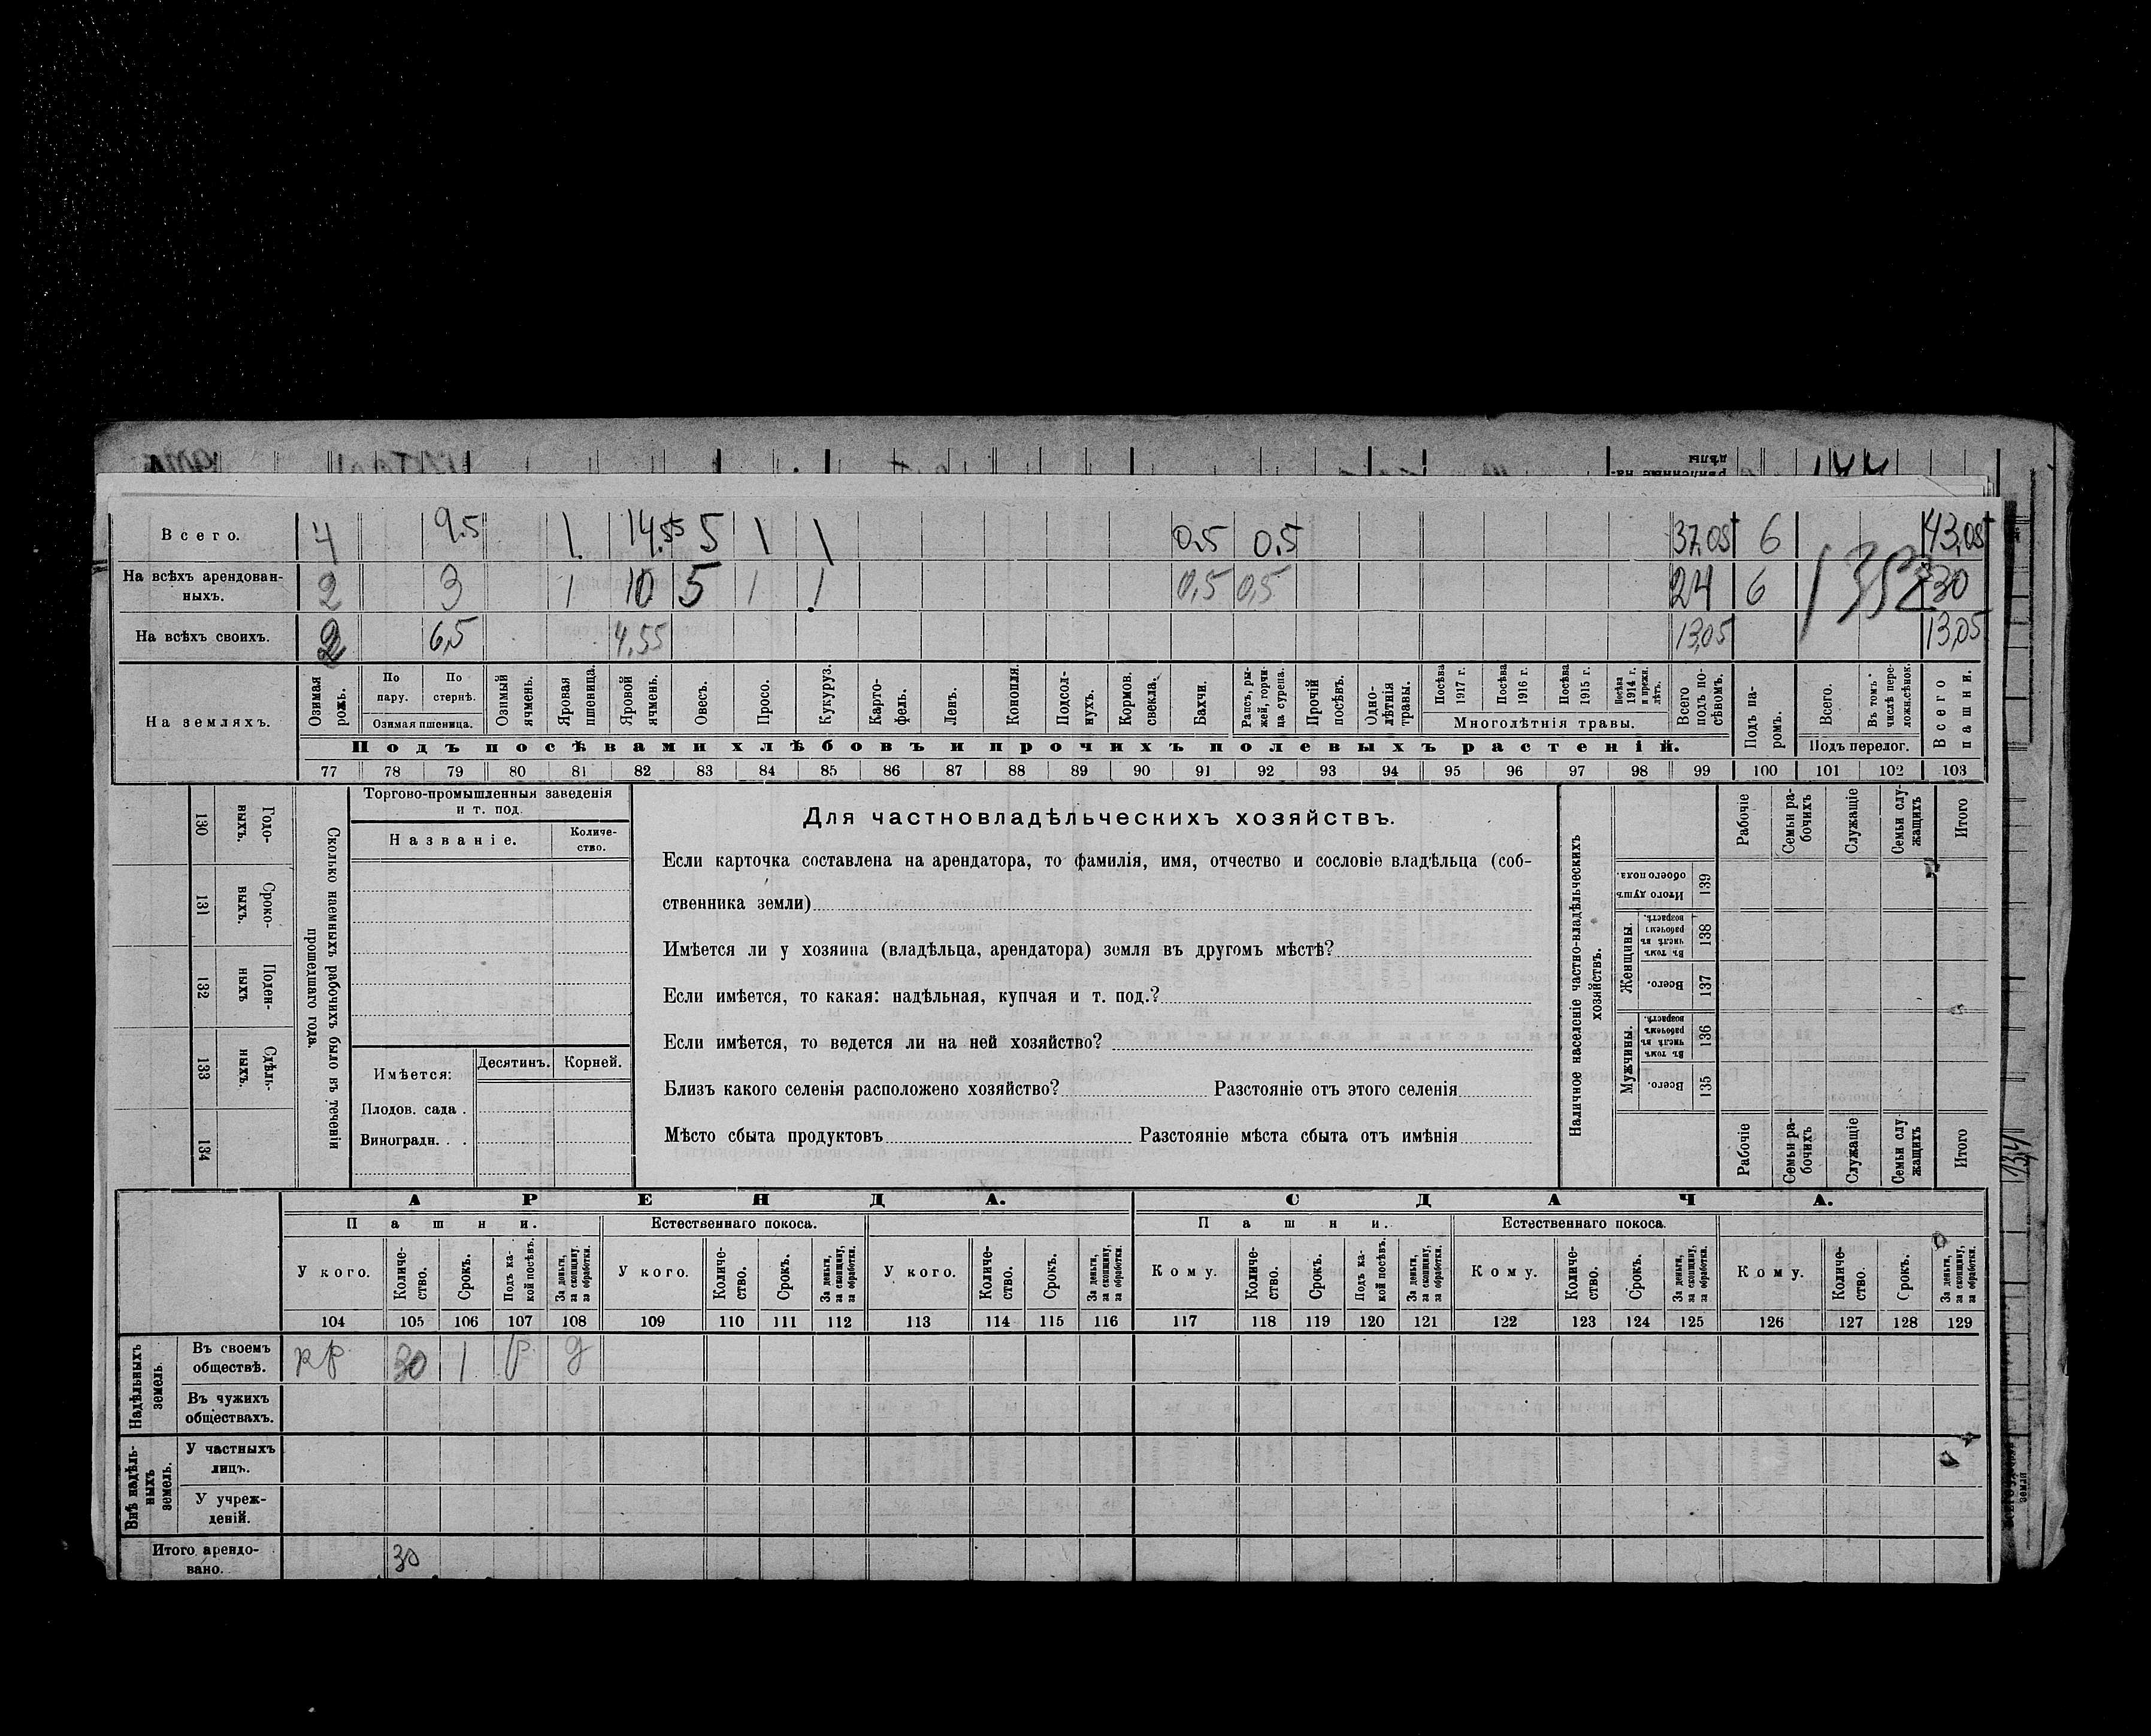 Всего. 4 9.5 1. 14.55 5 1 1 0.5 0.5 37,05 6 43,05
На всѣхъ арендован-
ныхъ. 2 3 1 10 5 1 1 0,5 0,5 24 6 30
1352
На всѣхъ своихъ. 2 6,5 4,55 13,05 13,05
На земляхъ.
Озимая рожь.
По пару.
По стернѣ.
Озимая пшеница.
Озимый ячмень.
Яровая пшеница.
Яровой ячмень.
Овесъ.
Просо.
Кукуруз.
Карто-
фель.
Ленъ.
Конопля.
Подсол-
нухъ.
Кормов. свекла.
Бахчи.
Рапсъ, ры-
жей, горчи
ца сурепа.
Прочій посѣвъ.
Одно-
лѣтнія травы.
Посѣва 1917 г.
Посѣва 1916 г.
Посѣва 1915 г.
Посѣва 1914 г. и прежн. лѣтъ.
Многолѣтнія травы.
Всего подъ по-
сѣвомъ.
Подъ па-
ромъ.
Всего.
Въ томъ числѣ пере-
ложн.сѣнок.
Подъ перелог.
Всего пашни.
Подъ посѣвами хлѣбовъ и прочихъ полевыхъ растеній.
77 78 79 80 81 82 83 84 85 86 87 88 89 90 91 92 93 94 95 96 97 98 99 100 101 102 103
130 Годо-
ныхъ.
131 Сроко-
выхъ.
132 Поден-
ныхъ
133 Сдѣль-
ныхъ.
134
Сколько наемныхъ рабочихъ было въ теченіи
прошедшаго года.
Торгово-промышленныя заведенія
и т. под.
Названіе.
Количе-
ство.
Имѣется:
Десятинъ. Корней.
Плодов. сада .
Виноградн. . .
Для частновладѣльческихъ хозяйствъ.
Если карточка составлена на арендатора, то фамилія, имя, отчество и сословіе владѣльца (соб-
ственника земли)
Имѣется ли у хозяина (владѣльца, арендатора) земля въ другомъ мѣстѣ?
Если имѣется, то какая: надѣльная, купчая и т. под.?
Если имѣется, то ведется ли на ней хозяйство?
Близъ какого селенія расположено хозяйство? Разстояніе отъ этого селенія
Мѣсто сбыта продуктовъ Разстояніе мѣста сбыта отъ имѣнія
Наличное населеніе частно-владѣльческихъ
хозяйствъ.
Рабочіе
Семьи ра-
бочихъ
Служащіе
Семьи слу-
жащихъ
Итого
Итого душъ обоего пола. 139
Женщины.
Въ томъ числѣ въ рабочемъ возрастѣ. 138
Всего. 137
Мужчины.
Въ томъ числѣ въ рабочемъ возрастѣ. 136
Всего. 135
Рабочіе
Семьи ра-
бочихъ
Служащіе
Семьи слу
жащихъ
Итого
АРЕНДА. СДАЧА.
Пашни. Естественнаго покоса. Пашни. Естественнаго покоса.
У кого.
Количе-
ство.
Срокъ.
Подъ ка-
кой посѣвъ.
За деньги, за скопщину, за обработки.
У кого.
Количе-
ство.
Срокъ.
За деньги, за скопщину, за обработки.
У кого.
Количе-
ство.
Срокъ.
За деньги, за скопщину, за обработки.
Кому.
Количе-
ство.
Срокъ.
Подъ ка-
кой посѣвъ.
За деньги, за скопщину, за обработки.
Кому.
Количе-
ство.
Срокъ.
За деньги, за скопщину, за обработки.
Кому.
Количе-
ство.
Срокъ.
За деньги, за скопщину, за обработки.
104 105 106 107 108 109 110 111 112 113 114 115 116 117 118 119 120 121 122 123 124 125 126 127 128 129
Надѣльныхъ земель.
Въ своемъ
обществѣ. кр. 30 1 р. д
Въ чужихъ
обществахъ.
Внѣ надѣль-
ныхъ земель.
У частныхъ
лицъ.
У учреж-
деній.
Итого арендо-
вано. 30